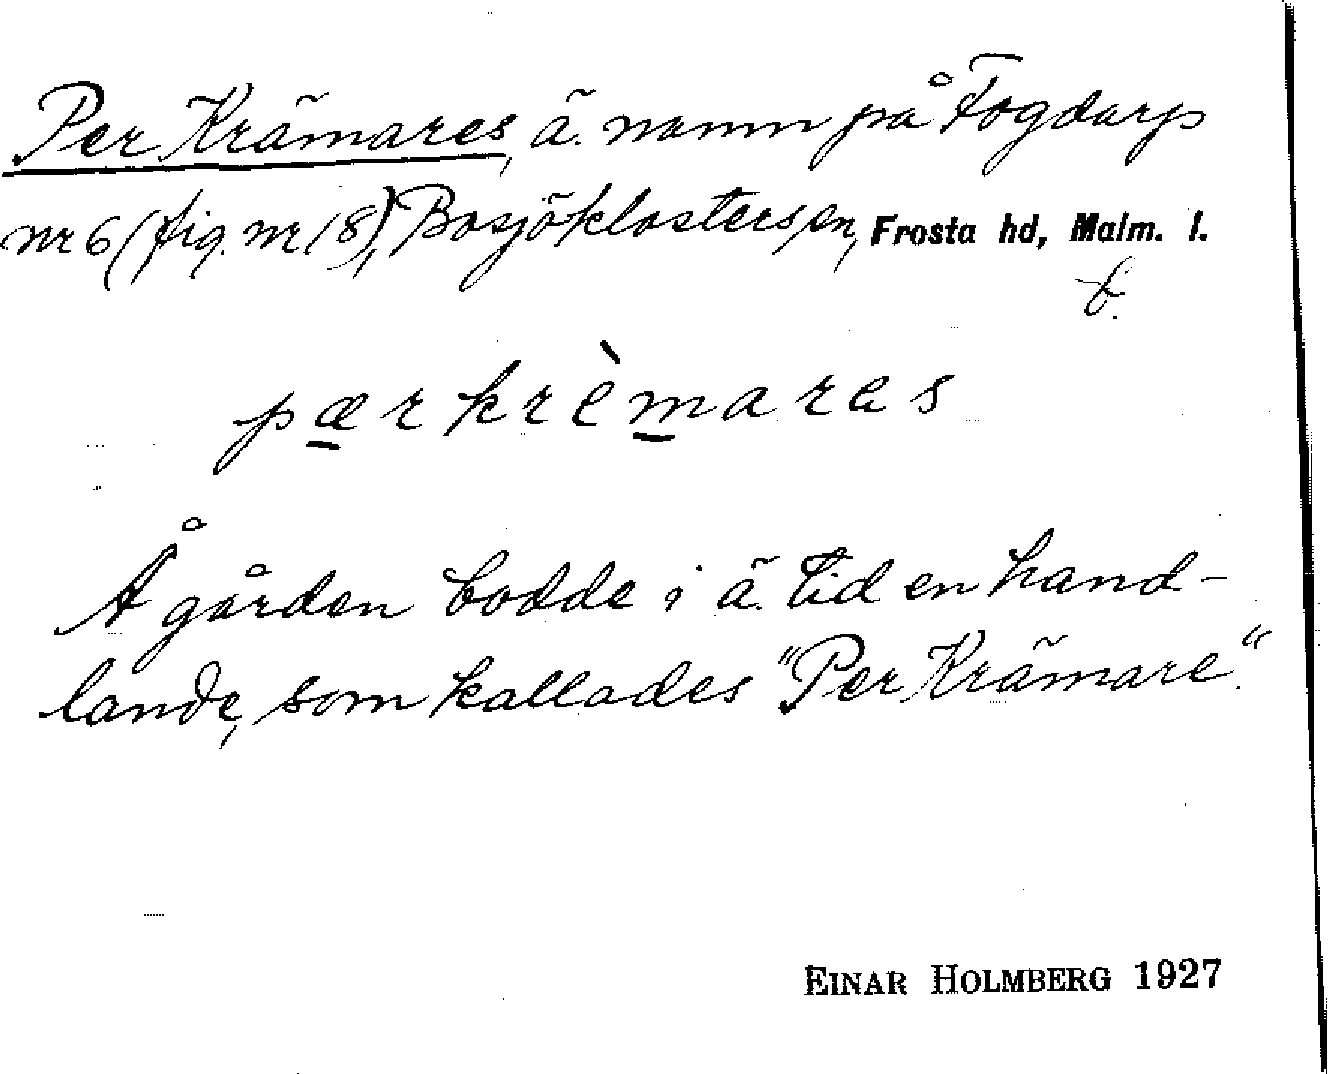 Per Krämares, ä. namn på Fogdarp
nr 6 (fig. nr 18), Bosjöklosters sn, Frosta hd, Malm. l.
f.
pærkrèmarəs
Å gården bodde i ä. tid en hand-
lande, som kallades "Per Krämare".
EINAR HOLMBERG 1927